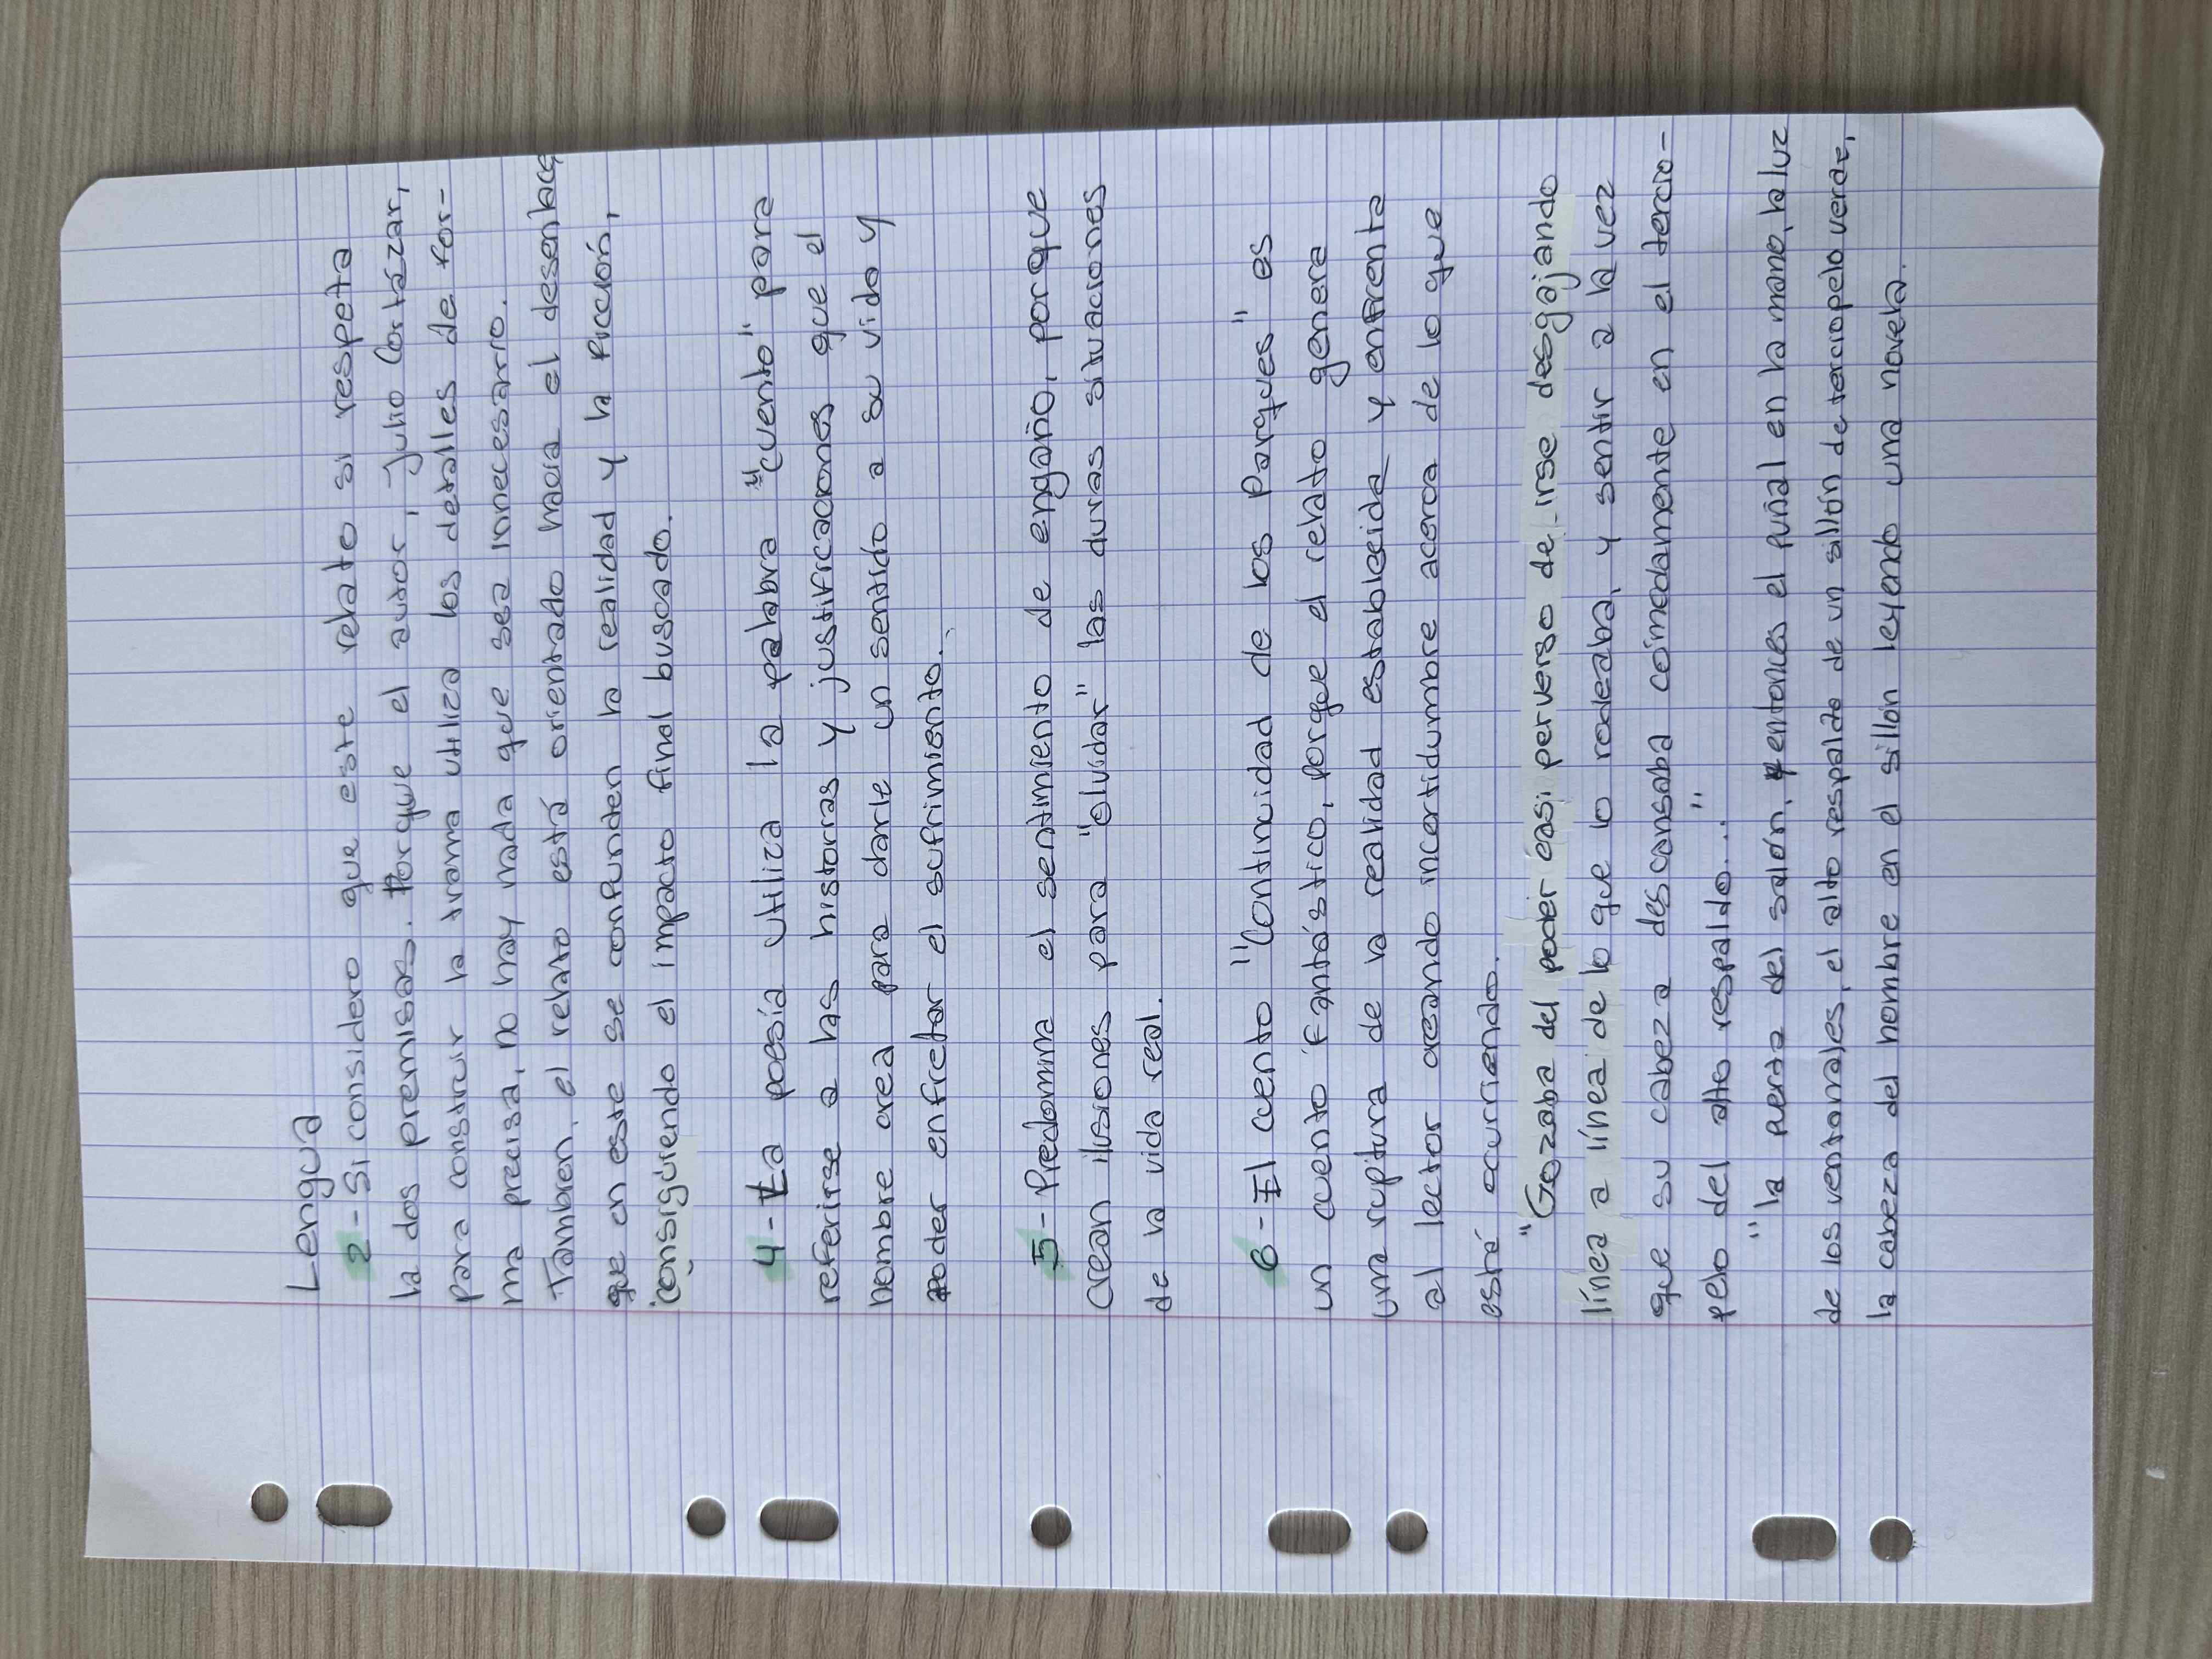 Lengua
2- Si considero que este relato si respeta
la dos premisas. Porque el autor, Julio Cortázar,
para construir la trama utiliza los detalles de for-
ma precisa, no hay nada que sea innecesario.
Tambien, el relato está orientado hacia el desenlace,
que en este se confunden la realidad y la ficción,
consiguiendo el impacto final buscado.
4- La poesía utiliza la palabra "cuento" para
referirse a las historias y justificaciones que el
hombre crea para darle un sentido a su vida y
poder enfretar el sufrimiento.
5- Predomina el sentimiento de engaño, porque
crean ilusiones para "olvidar" las duras situaciones
de la vida real.
6- El cuento "Continuidad de los Parques" es
un cuento fantástico, porque el relato genera
una ruptura de la realidad establecida y enfrenta
al lector creando incertidumbre acerca de lo que
está ocurriendo.
"Gozaba del poder casi perverso de irse desgajando
línea a línea de lo que lo rodeaba, y sentir a la vez
que su cabeza descansaba cómodamente en el tercio-
pelo del alto respaldo..."
"la puerta del salón, y entonces el puñal en la mano, la luz
de los ventanales, el alto respaldo de un sillón de terciopelo verde,
la cabeza del hombre en el sillón leyendo una novela.